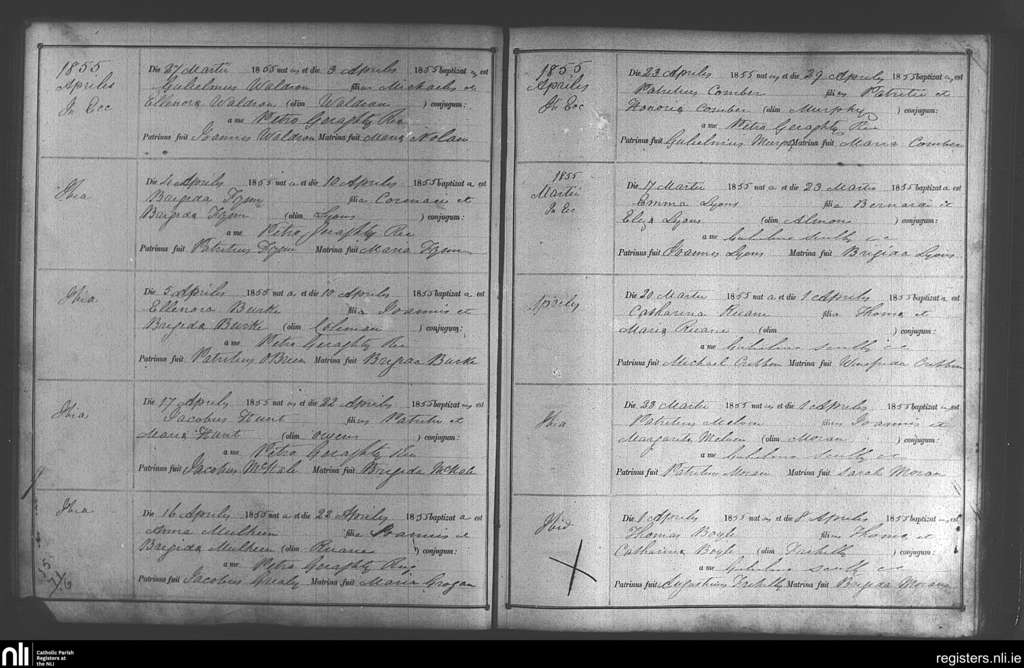 1855
Aprilis
In Ecc
Die 27 Martii 1855 nat us et die 3 Aprilis 1855 baptizat us est
Gulielmus Waldron filius Michaelis et
Ellenora Waldron (olim Waldron) conjugum:
a me Petro Geraghty
Patrinus fuit Joannes Waldron Matrina fuit Maria Nolan
Ibia
Die 4 Aprilis 1855 nat a et die 10 Aprilis 1855 baptizat a est
Brigida filia et
Brigida (olim Lyons) conjugum:
a me Petro Geraghty
Patrinus fuit Patritius Matrina fuit Maria
Ibia
Die 5 Aprilis 1855 nat a et die 10 Aprilis 1855 baptizat a est
Ellenora Burke filia Joannis et
Brigida Burke (olim Coleman) conjugum:
a me Petro Geraghty
Patrinus fuit Patritius O'Brien Matrina fuit Brigida Burke
Ibia
Die 17 Aprilis 1855 nat us et die 22 Aprilis 1855 baptizat us est
Jacobus Hunt filius Patritii et
Maria Hunt (olim Owens) conjugum:
a me Petro Geraghty
Patrinus fuit Jacobus McHale Matrina fuit Brigida McHale
Ibia
Die 16 Aprilis 1855 nat a et die 22 Aprilis 1855 baptizat a est
Anna Mulhern filia Joannis et
Brigida Mulhern (olim Ruane) conjugum:
a me Petro Geraghty
Patrinus fuit Jacobus Grealy Matrina fuit Maria Grogan
1855
Aprilis
In Ecc
Die 23 Aprilis 1855 nat us et die 29 Aprilis 1855 baptizat us est
Patritius Comber filius Patritii et
Honoria Comber (olim Murphy) conjugum:
a me Petro Geraghty
Patrinus fuit Gulielmus Murphy Matrina fuit Maria Comber
1855
Martii
In Ec
Die 17 Martii 1855 nat a et die 23 Martii 1855 baptizat a est
Emma Lyons filia Bernardi et
Eliza Lyons (olim) conjugum:
a me Gulielmo
Patrinus fuit Joannes Lyons Matrina fuit Brigida Lyons
Aprilis
Die 20 Martii 1855 nat a et die 1 Aprilis 1855 baptizat a est
Catharina Ruane filia Thoma et
Maria Ruane (olim ) conjugum:
a me Gulielmo
Patrinus fuit Michael Cribbon Matrina fuit Winifrida Cribbon
Ibia
Die 28 Martii 1855 nat us et die 1 Aprilis 1855 baptizat us est
Patritius filius Joannis et
Margarita (olim Moran) conjugum:
a me Gulielmo
Patrinus fuit Patritius Moran Matrina fuit Sarah Moran
Ibid
Die 1 Aprilis 1855 nat us et die 8 Aprilis 1855 baptizat us est
Thomas Boyle filius Thoma et
Catharina Boyle (olim) conjugum:
a me Gulielmo
Patrinus fuit Augustinus Matrina fuit Brigida Moran
nli
Catholic Parish
Registers at
the NLI
registers.nli.ie